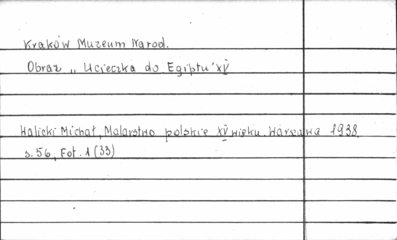 Kraków Muzeum Narod.
Obraz „Ucieczka do Egiptu" XV
Walicki Michał, Malarstwo polskie XV wieku. Warszawa 1938,
s. 56, Fot. 1 (33)